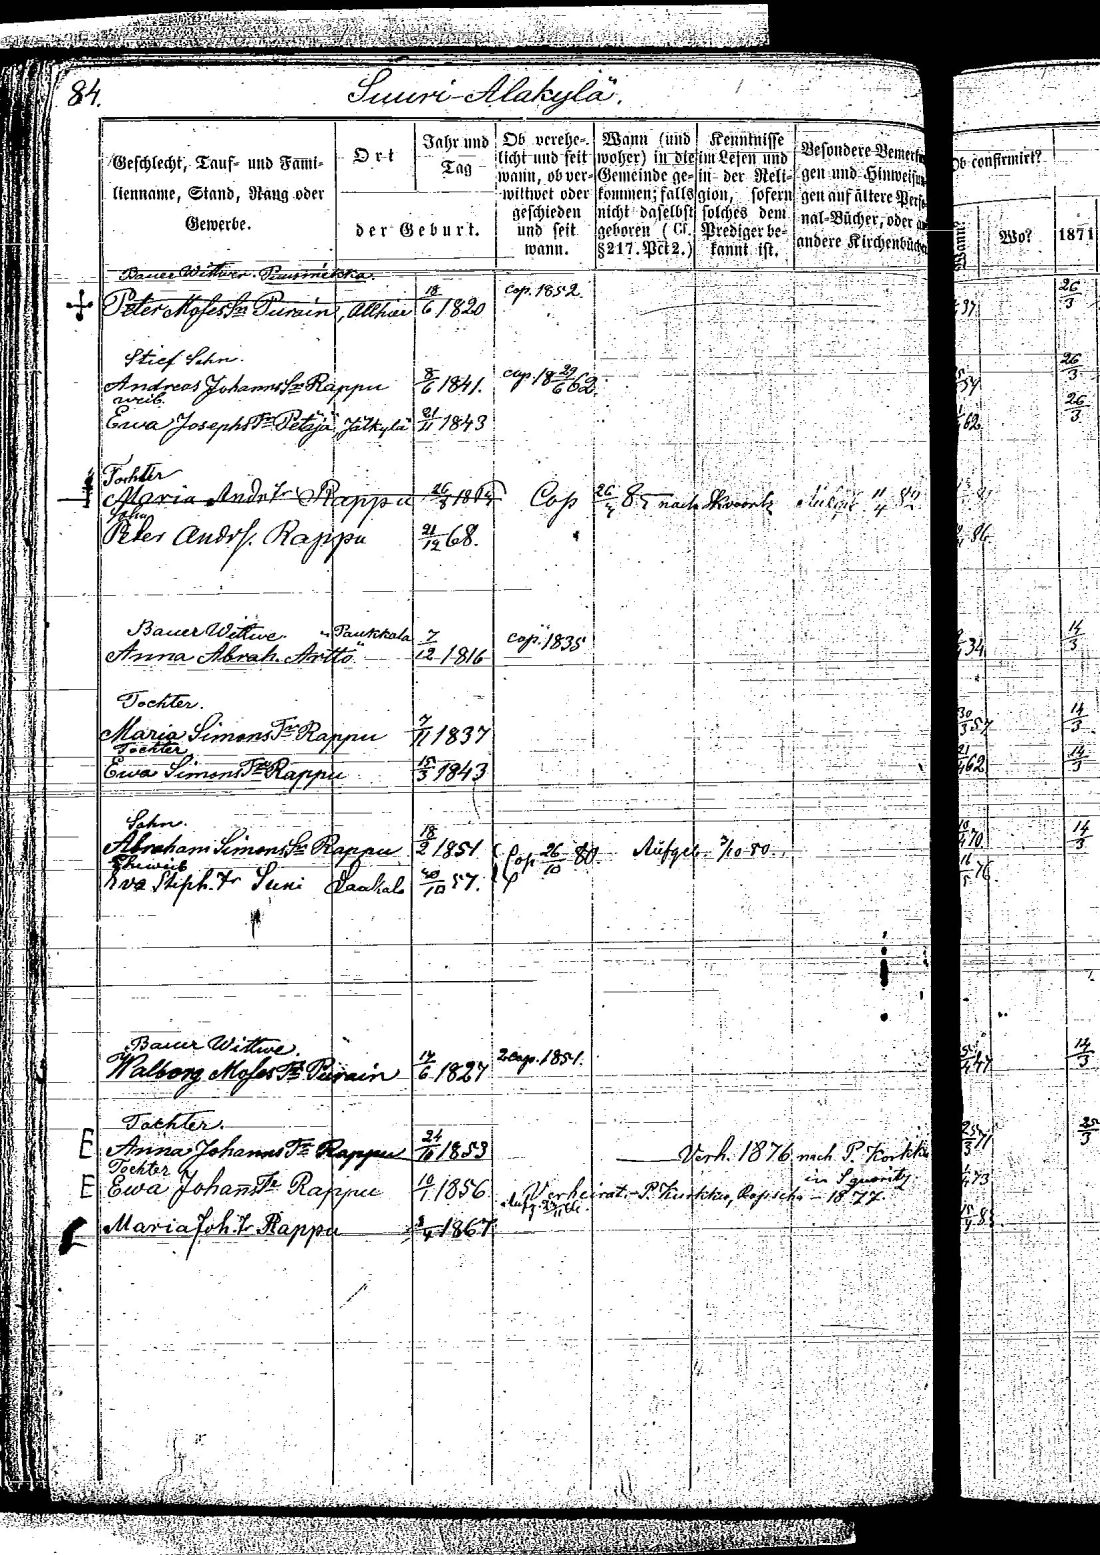 84.
Suuri-Alakylä.
Geschlecht, Tauf- und Fami-
lienname, Stand, Rang oder
Gewerbe.
Ort
der Geburt.
Jahr und
Tag
Ob verehe-
licht und seit
wann, ob ver-
wittwet oder
geschieden
und seit
wann.
Wann (und
woher) in die
Gemeinde ge-
kommen; falls
nicht daselbst
geboren (Cf.
§217. Pct 2.)
Kenntnisse
im Lesen und
in der Reli-
gion, sofern
solches dem
Prediger be-
kannt ist.
Besondere Bemerkun
gen und Hinweisun
gen auf ältere Perso
nal-Bücher, oder au
andere Kirchenbüche
Ob confirmirt?
Wann?
Wo?
1871
Bauer Wittwer.
Peter Moses Sn Purain, Allhier 18/6 1820 cop. 1852. 37 26/3
Stief Sohn.
Andreas Johanns Sn Rappu 8/6 1841. cop. 18 29/6 62. 26/3
weib.
Ewa Josephs Tr Petäjä, Jälkylä 21/11 1843 62 26/3
Tochter
Maria Andr. Tr Rappu 26/3 1864 Cop 26/4 85 nach Skvoritz 11/4 82
Sohn
Peter Andr S. Rappu 21/12 68. 86
Bauer Wittwe Paukkala 7/12 1816 cop. 1835
Anna Abrah. Arttö 34 14/3
Tochter.
Maria Simons Tr Rappu 7/11 1837 30/3 57 14/3
Tochter
Ewa Simons Tr Rappu 15/3 1843 21/4 62 14/3
Sohn.
Abraham Simons Sn Rappu 18/2 1851 Cop 26/10 80. Aufgeb. 3/10 80. 70 14/3
Eheweib
Eva Steph. Tr Susi 30/10 57. 76
Bauer Wittwe
Walborg Moses Tr Purain 14/6 1827 2 cop. 1851. 47 14/3
Tochter.
E Anna Johanns Tr Rappu 24/10 1853 Verh. 1876 nach P. Korkka 25/3 71 25/3
Tochter in Squoritz
E Ewa Johans Tr Rappu 10/1 1856 Verheirat. P. Kurkko, Ropscha - 1877. 73
Maria Joh. Tr Rappu 1867